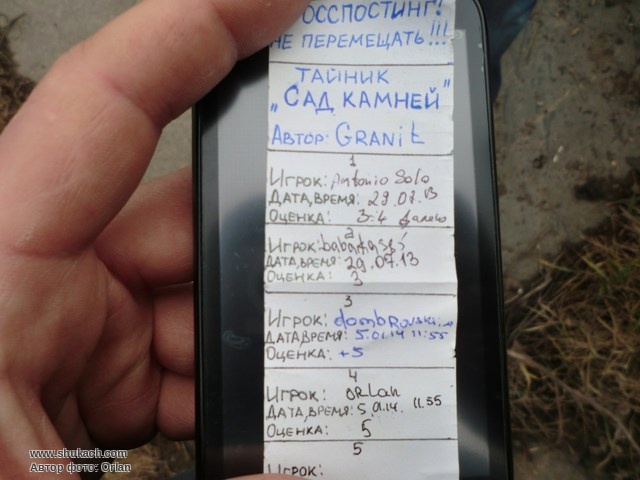 ОССПОСТИНГ!
НЕ ПЕРЕМЕЩАТЬ!!!
ТАЙНИК
„САД КАМНЕЙ”
АВТОР: GRANIt
1
ИГРОК: Antonio Solo
ДАТА,ВРЕМЯ: 29.07.13
ОЦЕНКА: 3:4
2
ИГРОК:
ДАТА,ВРЕМЯ: 29.07.13
ОЦЕНКА: 3
3
ИГРОК: dombRovski
ДАТА,ВРЕМЯ: 5.01.14 11:55
ОЦЕНКА: +5
4
ИГРОК: ORLAN
ДАТА,ВРЕМЯ: 5.01.14. 11.55
ОЦЕНКА: 5
5
ИГРОК:
www.shukach.com
Автор фото: Orlan